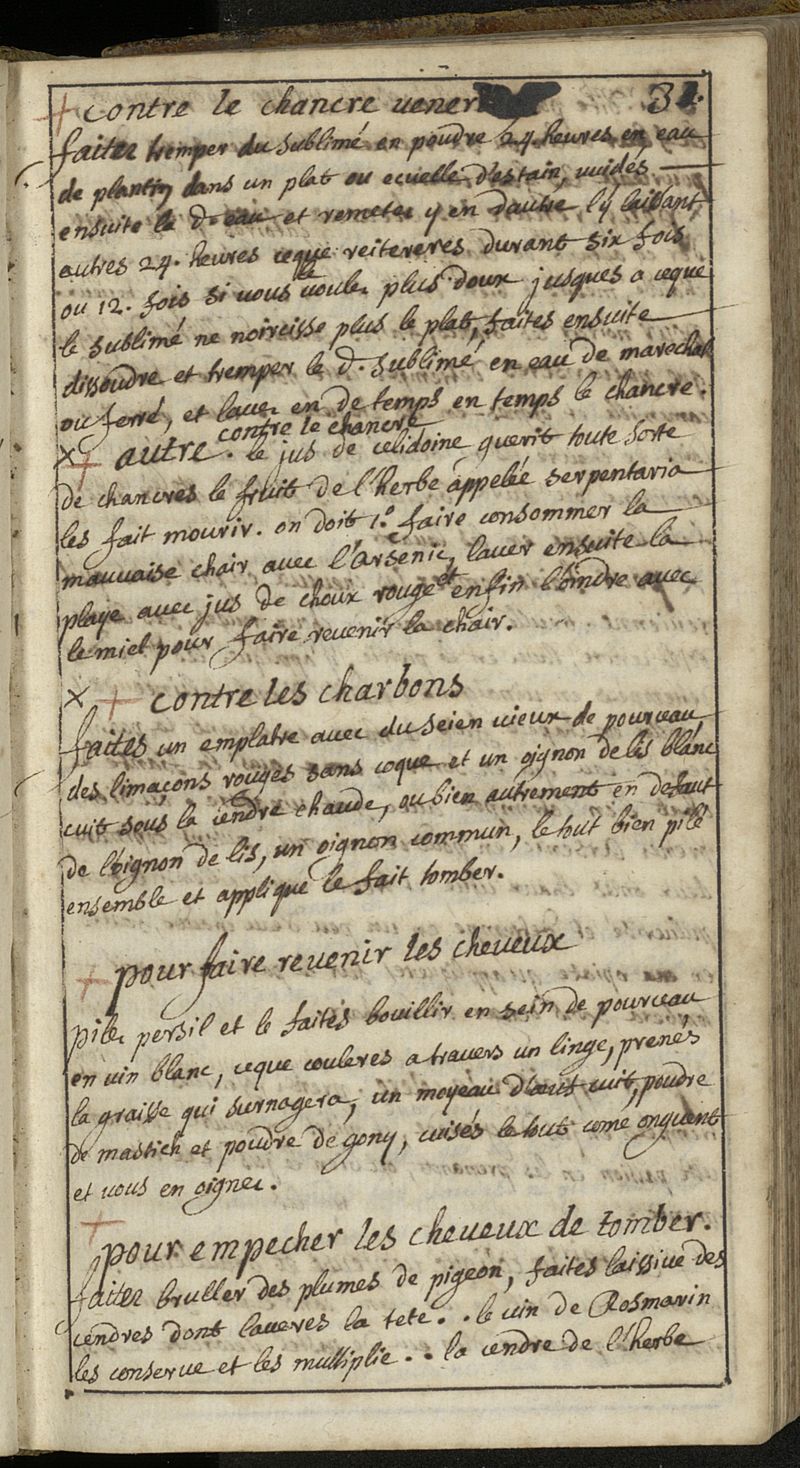 + contre le chancre vener 31.
faites tremper du sublimé en poudre 24. heures en eau
de plantin dans un plat ou ecuelle d'estain, vuidés
ensuite le d. eau et remetez y en d'autre l'y laissant
autres 24. heures ceque reitereres durant six fois
ou 12. fois si vous le voulez plus doux jusques a ceque
le sublimé ne noircisse plus le plat, faites ensuite
dissoudre et tremper le d. sublimé en eau de marechal
ou ferré, et lavez en de temps en temps le chancre.
contre le chancre
x + autre. le jus de celidoine querit toute sorte
de chancres le fruit de l'herbe appelée serpentaria
les fait mourir. on doit 1.º faire consommer la
mauvaise chair avec l'arsenic, laver ensuite la
playe avec jus de choux rouge et enfin l'oindre avec
le miel pour faire revenir la chair.
x + contre les charbons
faites un emplatre avec du seien vieux de pourceau
des limaçons rouges sans coque et un oignon de lis blanc
cuit sous la cendre chaude, ou bien autrement en defaut
de l'oignon de lis, un oignon commun, le tout bien pilé
ensemble et appliqué le fait tomber.
+ pour faire revenir les cheveux
pilez persil et le faites bouillir en sein de pourceau
en vin blanc, ceque couleres a travers un linge, prenés
la graisse qui surnagera, un moyeau d'œuf cuit, poudre
de mastich et poudre de gony, cuisés le tout come onguent
et vous en oignez.
+
pour empecher les cheveux de tomber.
faites bruller des plumes de pigeon, faites laissive des
cendres dont laveres la tete. . le vin de Rosmarin
les conserve et les multiplie. . la cendre de l'herbe